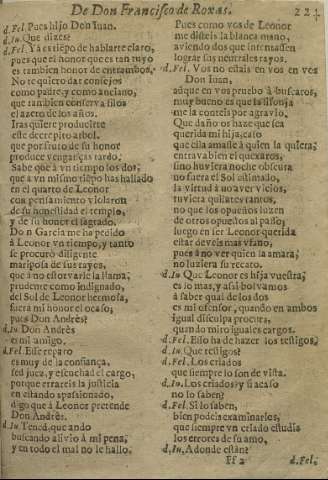 De Don Francisco de Roxas.
d.Fel. Pues hijo Don Iuan.
d.Iu. Que dizes?
d.Fel. Ya es tiẽpo de hablarte claro,
pues que el honor que es tan tuyo
es tambien honor de entrambos,
No te quiero dar consejos
como padre, y como anciano,
que tambien conserva filos
el azero de los años.
Iras quiere producirte
este decrepito arbol,
que por fruto de su honor
produce venganças tardo.
Sabe que à vn tiempo los dos,
que à vn mismo tiẽpo has hallado
en el quarto de Leonor
con pensamiento violaron
de su honestidad el templo,
y de su honor el sagrado.
Don Garcia me ha pedido
à Leonor vn tiempo, y tanto
se procurò diligente
mariposa de sus rayos,
que à no estorvarle la llama,
prudente como indignado,
del Sol de Leonor hermosa,
fuera mi honor el ocaso,
pues Don Andrès?
d.Iu. Don Andrès
es mi amigo.
d.Fel. Esse reparo
es muy de la confiança,
sed juez, y escuchad el cargo,
porque errareis la justicia
en estando apassionado,
digo que à Leonor pretende
Don Andrès.
d.Iu. Tened, que ando
buscando alivio à mi pena,
y en todo el mal no le hallo.
Pues como vos de Leonor
me disteis la blanca mano,
aviendo dos que intentassen
lograr sus neutrales rayos.
d.Fel. Vos no estais en vos en vos
Don Iuan,
aũque en vos pruebo à buscaros,
muy bueno es que la lisonja
me la conteis por agravio.
Que daño os haze que sea
querida mi hija, caso
que ella amasse à quien la quiera,
entrava bien el quexaros,
sino huviera noche obscura
no fuera el Sol estimado,
la virtud à no aver vicios,
tuviera quilates tantos,
no que los opuestos luzen
de otros opuestos al passo,
luego en ser Leonor querida
estar deveis mas vfano,
pues à no aver quien la amara,
no luziera su recato.
d.Iu. Que Leonor es hija vuestra,
es lo mas, y assi bolvamos
à saber qual de los dos
es mi ofensor, quando en ambos
igual disculpa procura,
quando miro iguales cargos.
d.Fel. Esso ha de hazer los testigos.
d.Iu. Que testigos?
d.Fel. Los criados
que siempre lo son de vista.
d.Iu. Los criados? y si acaso
no lo saben?
d.Fel. Si lo saben,
bien podeis examinarles,
que siempre vn criado estudia
los errores de su amo,
d.Iu. Adonde estàn?
Ff 2
d.Fel.